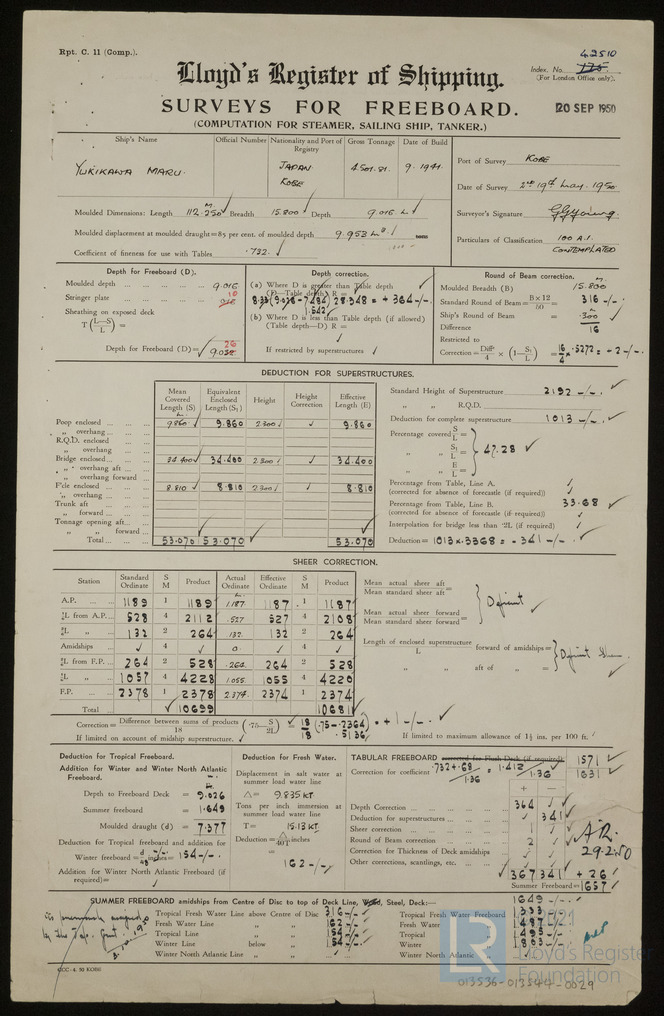 Rpt. C. 11 (Comp.).
42510
Index. No. 175.
(For London Office only).
Lloyd's Register of Shipping.
SURVEYS FOR FREEBOARD.
20 SEP 1950
(COMPUTATION FOR STEAMER, SAILING SHIP, TANKER.)
Ship's Name Official Number Nationality and Port of Registry Gross Tonnage Date of Build
YUKIKAWA MARU. JAPAN KOBE 4,501.81. 9. 1941.
Port of Survey KOBE
Date of Survey 2nd 19th May. 1950
Surveyor's Signature
Particulars of Classification 100 A.1. CONTEMPLATED
Moulded Dimensions: Length 112.250 Breadth 15.800 Depth 9.016 M
Moulded displacement at moulded draught=85 per cent. of moulded depth 9.953 tons
Coefficient of fineness for use with Tables .732.
Depth for Freeboard (D).
Moulded depth 9.016
Stringer plate 10
Sheathing on exposed deck
T(L-S/L) =
Depth for Freeboard (D) = 9.026
Depth correction.
(a) Where D is greater than Table depth
(D—Table depth) R =
8.33(9.026 - 7.484) 28.348 = + 364 -/-.
1.542
(b) Where D is less than Table depth (if allowed)
(Table depth—D) R =
If restricted by superstructures
Round of Beam correction.
Moulded Breadth (B) 15.800
Standard Round of Beam = B×12/50 = 316 -/-
Ship's Round of Beam = 300
Difference 16
Restricted to
Correction = Diff/4 × (1 - S₁/L) = 16/4 × .5272 = - 2 -/-.
DEDUCTION FOR SUPERSTRUCTURES.
Mean Covered Length (S) Equivalent Enclosed Length (S₁) Height Height Correction Effective Length (E)
Poop enclosed 9.860 9.860 2.300 9.860
„ overhang
R.Q.D. enclosed
„ overhang
Bridge enclosed 34.400 34.400 2.300 34.400
„ overhang aft
„ overhang forward
F'cle enclosed 8.810 8.810 2.300 8.810
„ overhang
Trunk aft
„ forward
Tonnage opening aft
„ „ forward
Total 53.070 53.070 53.070
Standard Height of Superstructure 2192 -/-.
„ „ R.Q.D.
Deduction for complete superstructure 1013 -/-.
Percentage covered S/L =
„ „ S₁/L = 47.28
„ „ E/L =
Percentage from Table, Line A.
(corrected for absence of forecastle (if required))
Percentage from Table, Line B. 33.68
(corrected for absence of forecastle (if required))
Interpolation for bridge less than ·2L (if required)
Deduction = 1013 × .3368 = - 341 -/-.
SHEER CORRECTION.
Station Standard Ordinate S M Product Actual Ordinate Effective Ordinate S M Product
A.P. 1189 1 1189 1.187. 1187. 1 1187
⅙L from A.P. 528 4 2112 .527 527 4 2108
⅓L „ 132 2 264 .132. 132 2 264
Amidships 4 0. 4
⅓L from F.P. 264 2 528 .264. 264 2 528
⅙L „ 1057 4 4228 1.055. 1055 4 4220
F.P. 2378 1 2378 2.374. 2374 1 2374
Total 10699 10681
Mean actual sheer aft
Mean standard sheer aft =
Mean actual sheer forward
Mean standard sheer forward =
Deficient
Length of enclosed superstructure forward of amidships =
L
„ „ aft of „ =
Deficient Sheer.
Correction = Difference between sums of products/18 (.75 - S/2L) = 18/18 (.75 - .2364) = + 1 -/-.
.5136
If limited on account of midship superstructure.
If limited to maximum allowance of 1½ ins. per 100 ft.
Deduction for Tropical Freeboard.
Addition for Winter and Winter North Atlantic Freeboard.
Depth to Freeboard Deck = 9.026
Summer freeboard = 1.649
Moulded draught (d) = 7.377
Deduction for Tropical freeboard and addition for
Winter freeboard = d/48 inches = 154 -/-.
Addition for Winter North Atlantic Freeboard (if required) =
Deduction for Fresh Water.
Displacement in salt water at summer load water line
Δ = 9.835 KT
Tons per inch immersion at summer load water line
T = 15.13 KT
Deduction = Δ/40T inches
= 162 -/-.
TABULAR FREEBOARD corrected for Flush Deck (if required) 1571
Correction for coefficient .732 + .68/1.36 = 1.412/1.36 1631
+ -
Depth Correction 364
Deduction for superstructures 341
Sheer correction 1
Round of Beam correction 2
Correction for Thickness of Deck amidships
Other corrections, scantlings, etc.
367 341 + 26
Summer Freeboard = 1657
A.R.
29.2.50
SUMMER FREEBOARD amidships from Centre of Disc to top of Deck Line, Wood, Steel, Deck:— 1649 -/-.
Tropical Fresh Water Line above Centre of Disc 316 -/-
Fresh Water Line „ „ 162 -/-
Tropical Line „ „ 154 -/-
Winter Line below „ „ 154 -/-
Winter North Atlantic Line „ „
Tropical Fresh Water Freeboard 1333
Fresh Water „ 1487
Tropical „ 1495
Winter „ 1803
Winter North Atlantic „
CCC-4. 50 KOBE
LR
Lloyd's Register
Foundation
013536-013544-0029